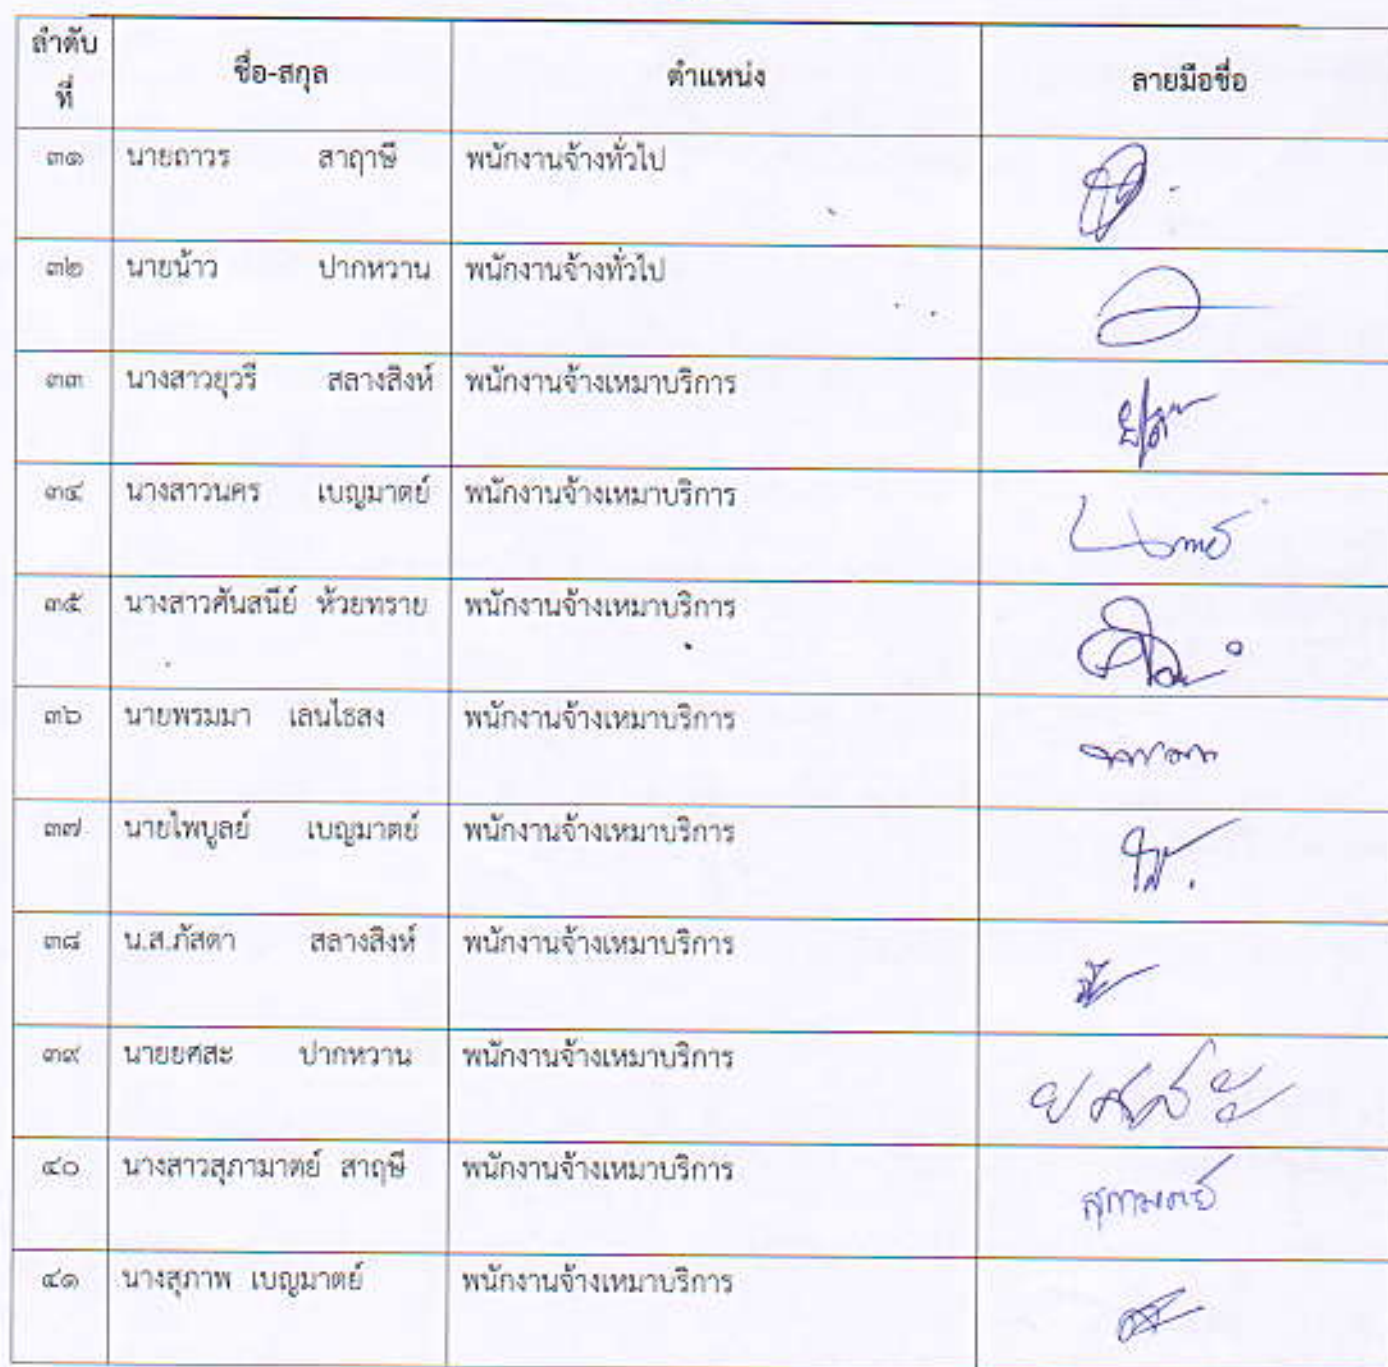 ลำดับที่ ชื่อ-สกุล ตำแหน่ง ลายมือชื่อ
๓๑ นายถาวร สาฤาษี พนักงานจ้างทั่วไป
๓๒ นายน้าว ปากหวาน พนักงานจ้างทั่วไป
๓๓ นางสาวยุวรี สลางสิงห์ พนักงานจ้างเหมาบริการ
๓๔ นางสาวนคร เบญมาตย์ พนักงานจ้างเหมาบริการ
๓๕ นางสาวศันสนีย์ ห้วยทราย พนักงานจ้างเหมาบริการ
๓๖ นายพรมมา เลนไธสง พนักงานจ้างเหมาบริการ
๓๗ นายไพบูลย์ เบญมาตย์ พนักงานจ้างเหมาบริการ
๓๘ น.ส.ภัสดา สลางสิงห์ พนักงานจ้างเหมาบริการ
๓๙ นายยศสะ ปากหวาน พนักงานจ้างเหมาบริการ ยศสะ
๔๐ นางสาวสุภามาตย์ สาฤษี พนักงานจ้างเหมาบริการ สุภามาตย์
๔๑ นางสุภาพ เบญมาตย์ พนักงานจ้างเหมาบริการ